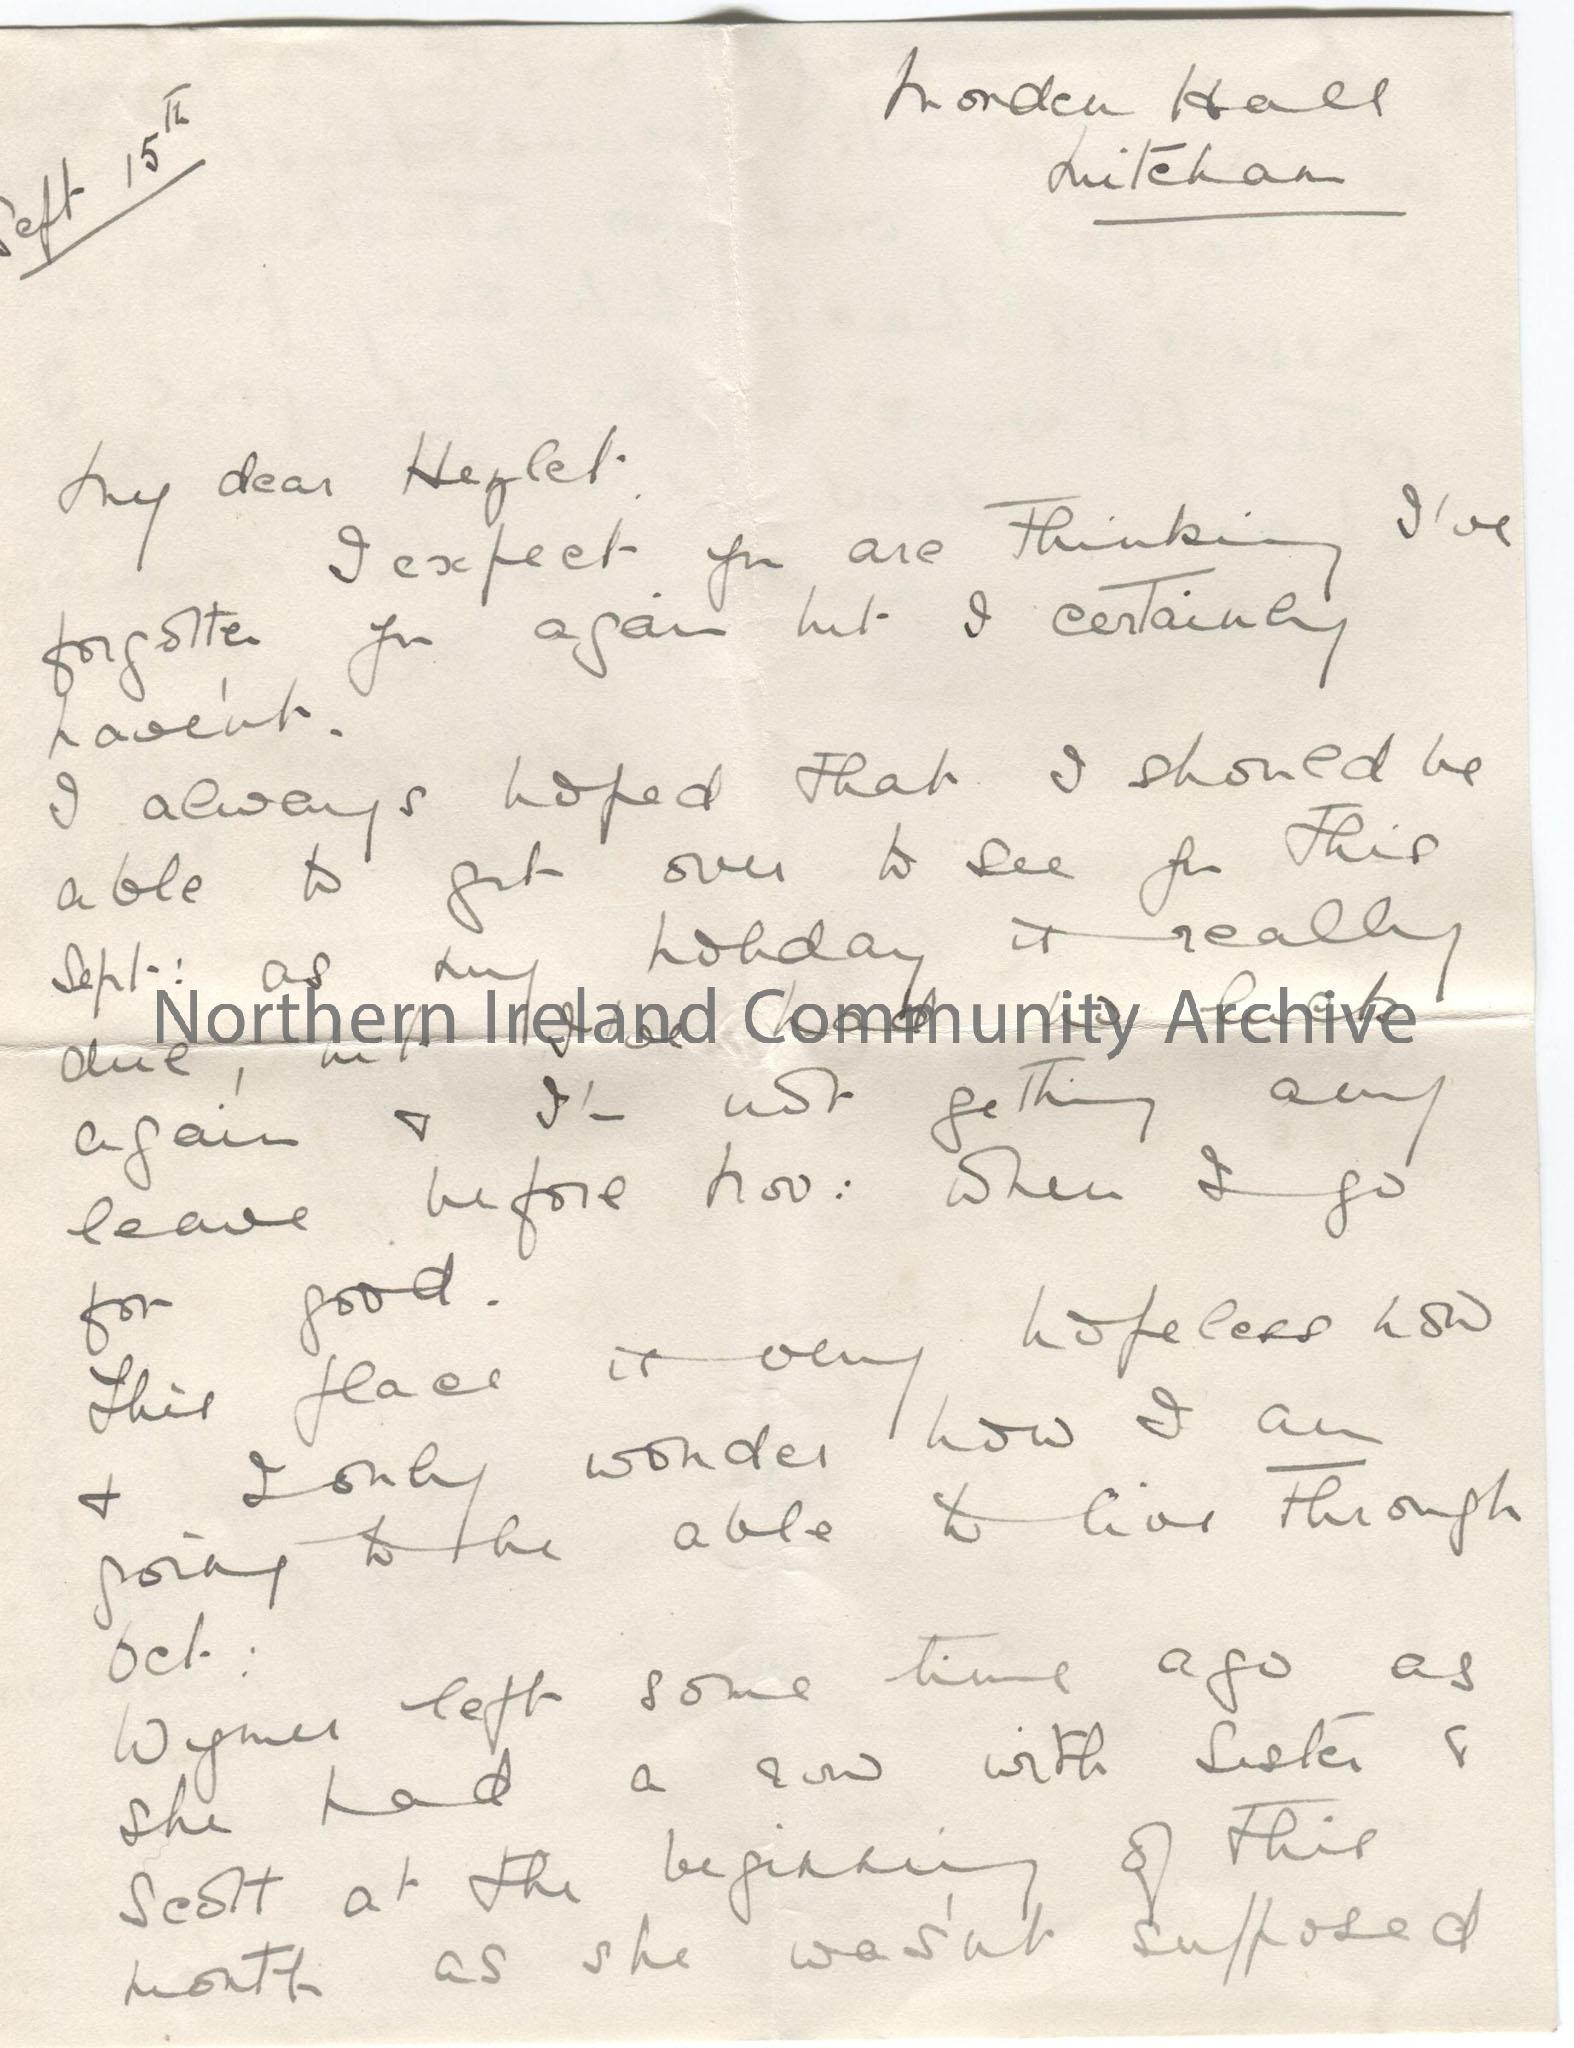 Sept 15th
Morden Hall
Mitcham
My dear Hezlet.
I expect you are thinking I've
forgotten you again but I certainly
have'nt.
I always hoped that I should be
able to get over to see you this
Sept: as my holiday is really
due, but I've had to
again & I'm not getting any
leave before Nov: when I go
for good.
This place is very hopeless now
& I only wonder how I am
going to be able to live through
Oct:
Wymer left some time ago as
she had a row with Sister &
Scott at the beginning of this
month as she was'nt supposed
Northern Ireland Community Archive